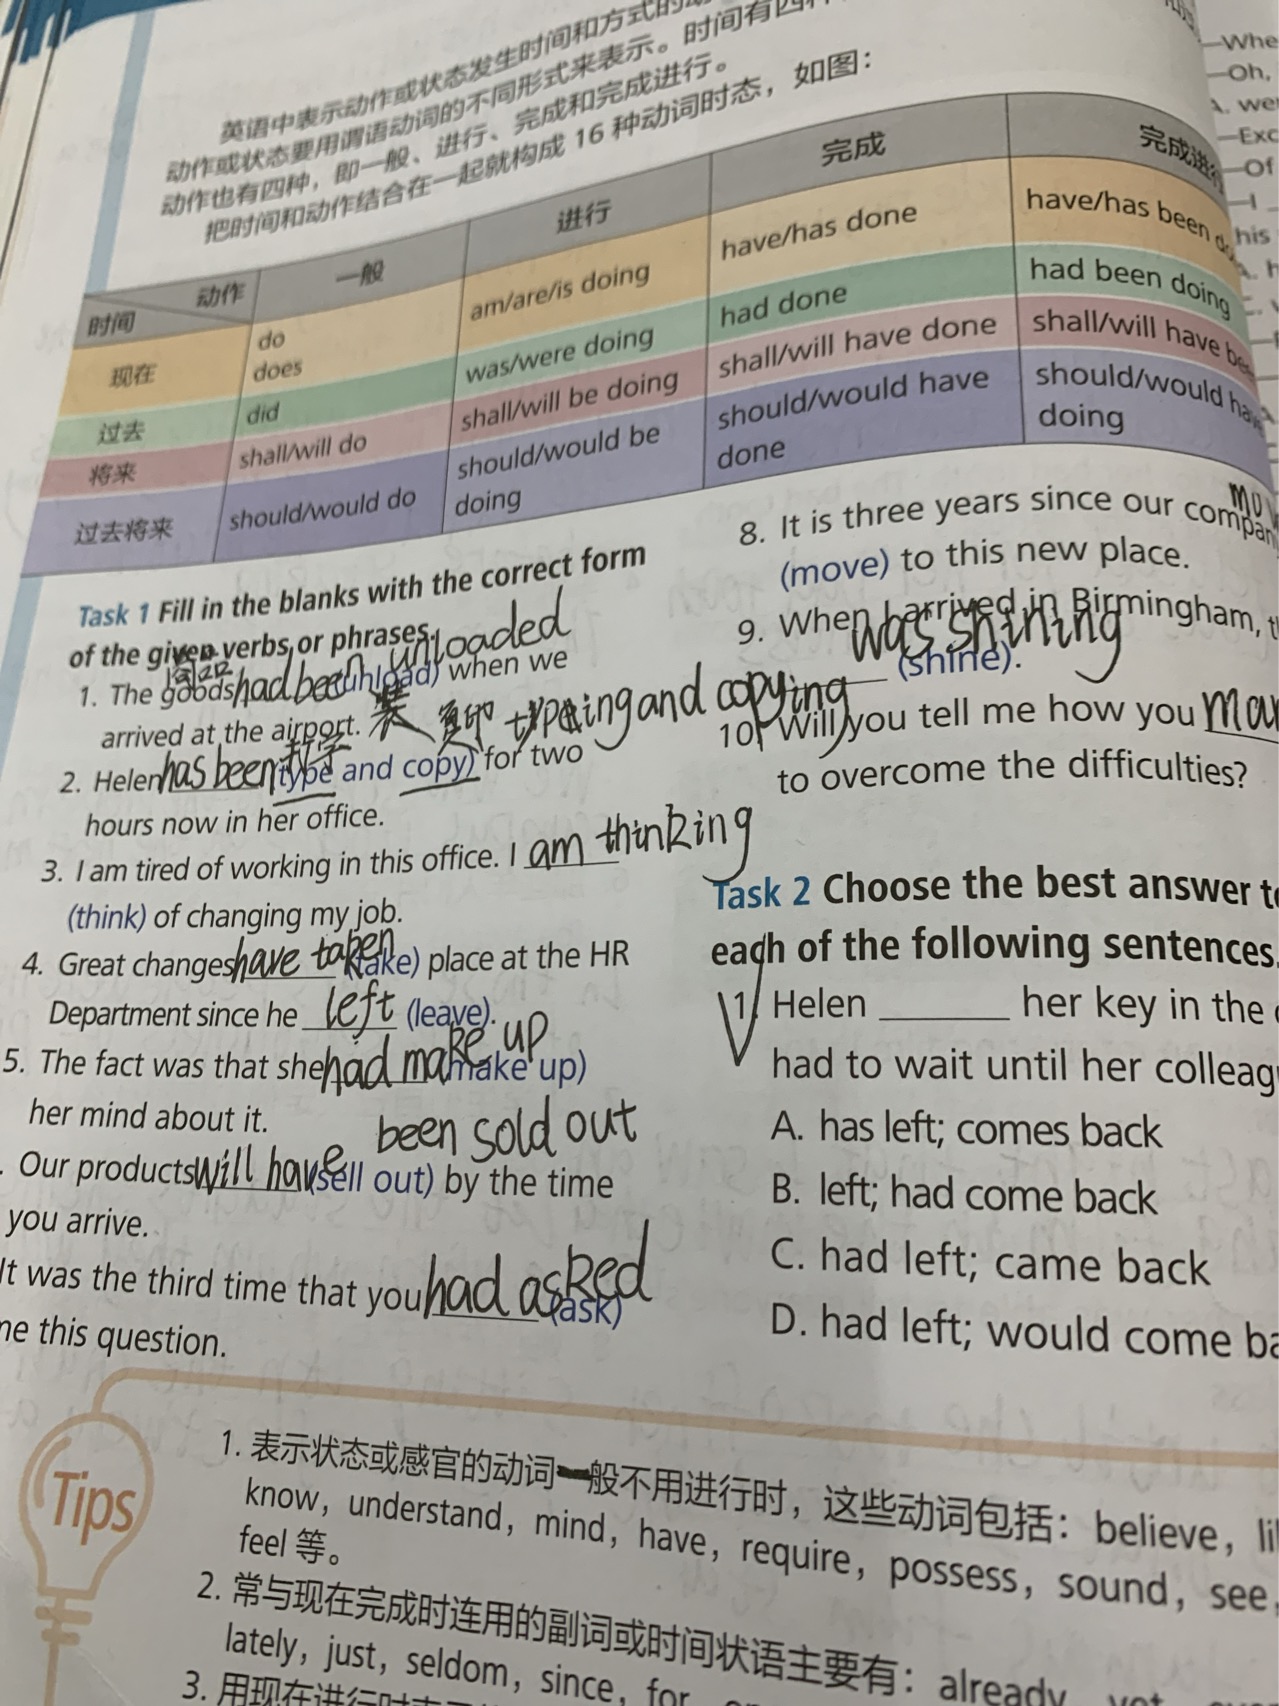 英语中表示动作或状态发生时间和方式的
动作或状态要用谓语动词的不同形式来表示。时间有四种
动作也有四种，即一般、进行、完成和完成进行。
把时间和动作结合在一起就构成 16 种动词时态，如图：
动作 一般 进行 完成 完成进行
时间
现在 do does am/are/is doing have/has done have/has been
过去 did was/were doing had done had been doing
将来 shall/will do shall/will be doing shall/will have done shall/will have
过去将来 should/would do should/would be doing should/would have done should/would doing
Task 1 Fill in the blanks with the correct form
of the given verbs or phrases.
1. The goods had been unloaded (unload) when we
arrived at the airport. 装 复印 typeing and copying
打字
2. Helen has been (type and copy) for two
hours now in her office.
3. I am tired of working in this office. I am thinking
(think) of changing my job.
4. Great changes have taken (take) place at the HR
Department since he left (leave).
5. The fact was that she had make up (make up)
her mind about it.
been sold out
. Our products will have (sell out) by the time
you arrive.
It was the third time that you had asked (ask)
me this question.
8. It is three years since our
(move) to this new place.
9. When I arrived in Birmingham,
was shining (shine).
10. Will you tell me how you
to overcome the difficulties?
Task 2 Choose the best answer
each of the following sentences.
1. Helen ______ her key in the
had to wait until her
A. has left; comes back
B. left; had come back
C. had left; came back
D. had left; would come
Tips
1. 表示状态或感官的动词一般不用进行时，这些动词包括：believe，
know，understand，mind，have，require，possess，sound，see，
feel 等。
2. 常与现在完成时连用的副词或时间状语主要有：already，
lately，just，seldom，since，for
3. 用现在进行时表示
—Whe
—Oh,
A. wer
—Exc
—Of
—I
his